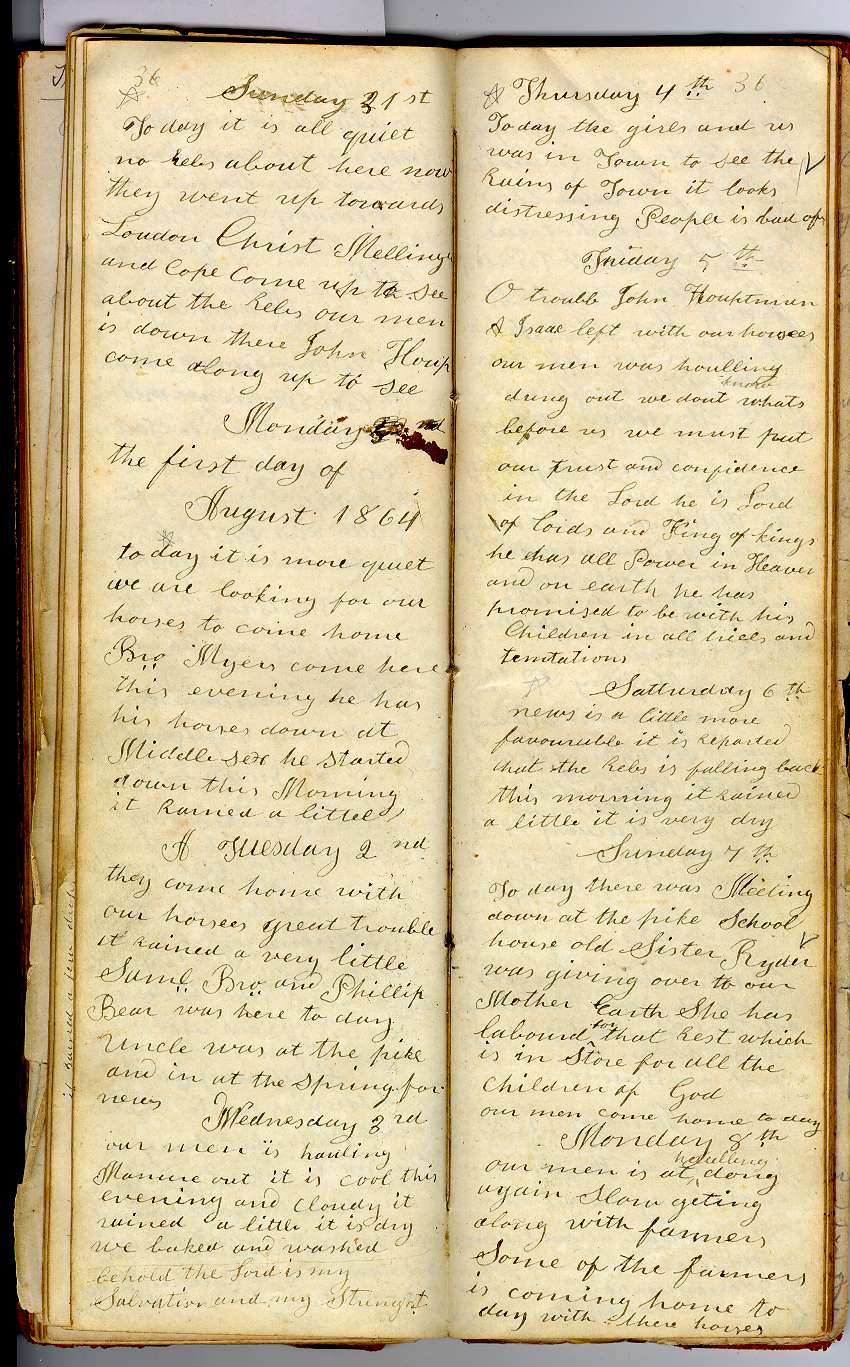 36
Sunday 31st
To day it is all quiet
no Rebs about here now
they went up towards
Loudon Christ Mellinger
and Cope Come up to see
about the Rebs our men
is down there John Houp
come along up to see
Monday
the first day of
August 1864
to day it is more quiet
we are looking for our
horses to come home
Bro Myers come here
this evening he has
his horses down at
Middle sex he started
down this Morning
it Rained a little
A Tuesday 2nd
they come home with
our horsees great trouble
it Rained a very little
Saml Bro and Phillip
Bear was here to day
Uncle was at the pike
and in at the Spring for
news
Wednesday 3rd
our men is hauling
Manure out it is cool this
evening and cloudy it
rained a little it is dry
we baked and washed
behold the Lord is my
Salvation and my Strenght
it rained a few
A Thursday 4th 36
To day the girls and us
was in Town to see the
Ruins of Town it looks
distressing People is bad of
Friday 5th
O trouble John Houptman
& Isaac left with our horsees
our men was houlling
know
dung out we dont whats
before us we must put
our trust and confidence
in the Lord he is Lord
of Loids and King of kings
he has all Power in Heaven
and on earth he has
promised to be with his
Children in all triels and
temtations
Satturday 6th
news is a little more
favourable it is Reported
that the Rebs is falling back
this morning it rained
a little it is very dry
Sunday 7th
To day there was Meeting
down at the pike School
house old Sister Ryder
was giving over to our
Mother Earth She has
for
labourd that Rest which
is in Store for all the
Children of God
our men come home to day
Monday 8th
houlling
our men is at dong
again Slow geting
along with farmers
Some of the farmers
is coming home to
day with there horses